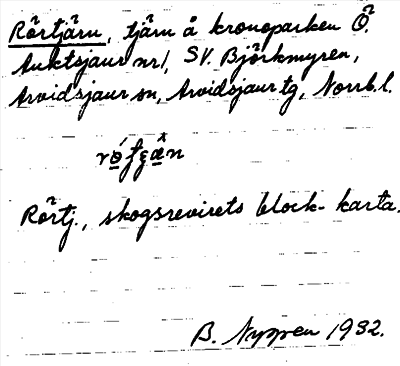 Rörtjärn, tjärn å kronoparken Ö.
Auktsjaur nr 1, SV. Björkmyren,
Arvidsjaur sn, Arvidsjaur tg, Norrb.l.
Rörtj., skogsrevirets block-karta.
B. Nygren 1932.